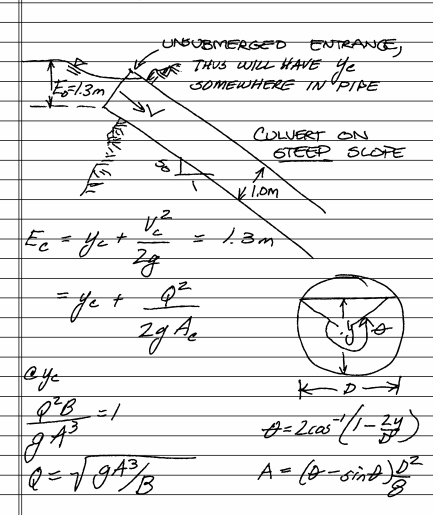 UNSUBMERGED ENTRANCE,
THUS WILL HAVE yc
SOMEWHERE IN PIPE
E₀=1.3m
V
CULVERT ON
STEEP SLOPE
8
1
1.0m
Ec = yc + Vc²/2g = 1.3m
= yc + Q²/2gAc
y θ
D
@yc
Q²B/gA³ = 1
θ = 2cos⁻¹(1 - 2y/D)
Q = √gA³/B
A = (θ - sinθ) D²/8